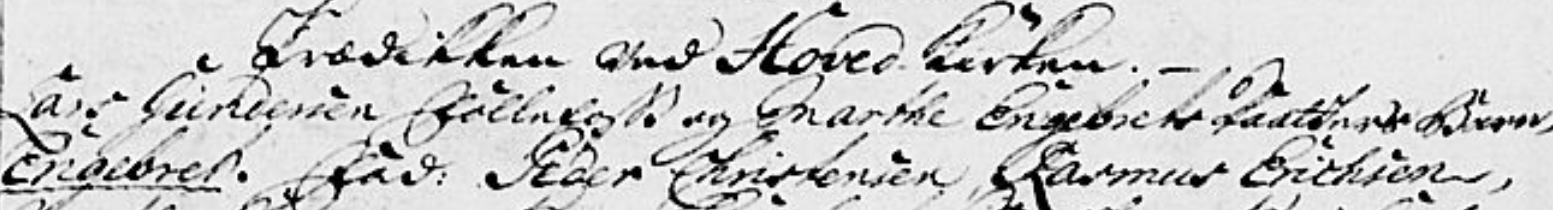 Prædikken ved Hoved-Kirken. –
Lars Gundersen og Marthe Engebrets Daatters Barn,
Engebret. Fad: Peder Christensen, Rasmus Erichsen,